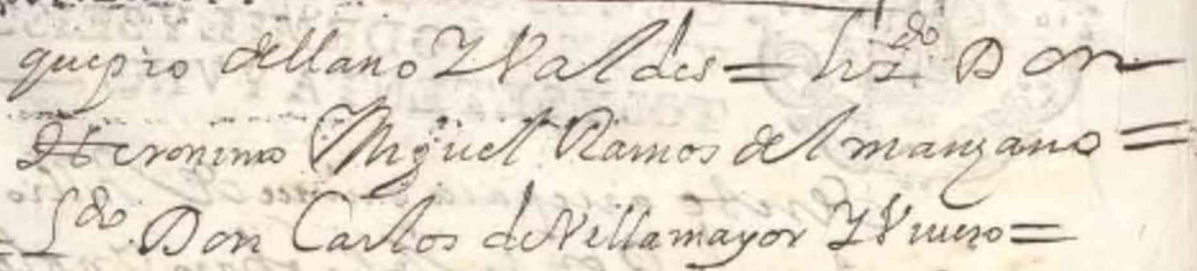 quepo dellano Y Valdes = liz.do Don
Heronimo Miguel Ramos del manzano =
Ldo. Don Carlos de Villamayor Y Vivero =